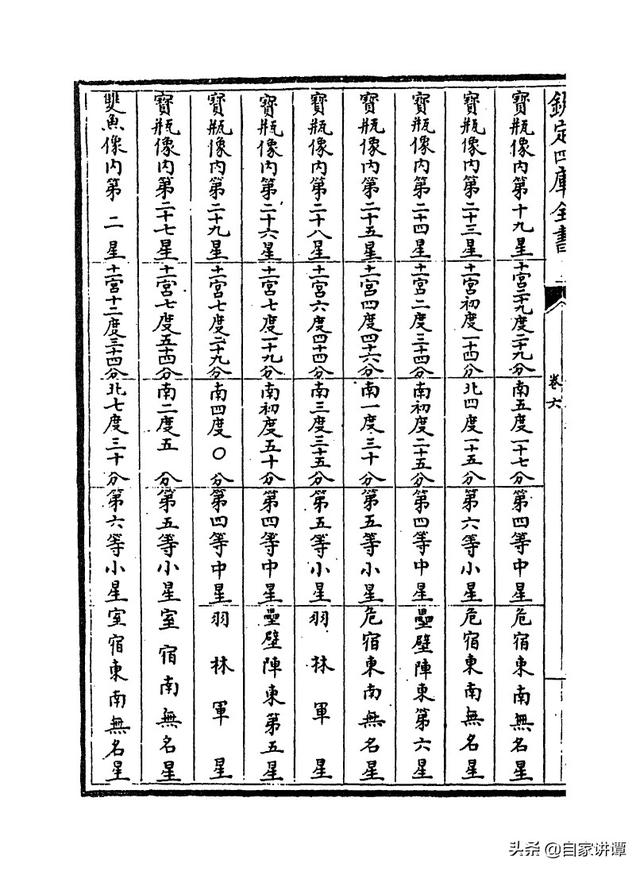 欽定四庫全書
卷六
寶瓶像內第十九星 十宮二十九度二十九分 南五度一十七分 第四等中星 危宿東南無名星
寶瓶像內第二十三星 十一宮初度一十四分 北四度一十五分 第六等小星 危宿東南無名星
寶瓶像內第二十四星 十一宮二度三十四分 南初度二十五分 第四等中星 壘壁陣東第六星
寶瓶像內第二十五星 十一宮四度四十六分 南一度三十分 第五等小星 危宿東南無名星
寶瓶像內第二十八星 十一宮六度四十四分 南三度三十五分 第五等小星 羽林軍星
寶瓶像內第二十六星 十一宮七度一十九分 南初度五十分 第四等中星 壘壁陣東第五星
寶瓶像內第二十九星 十一宮七度二十九分 南四度〇分 第四等中星 羽林軍星
寶瓶像內第二十七星 十一宮七度五十四分 南二度五分 第五等小星 室宿南無名星
雙魚像內第二星 十一宮十二度三十四分 北七度三十分 第六等小星 室宿東南無名星
头条 @自家讲谭